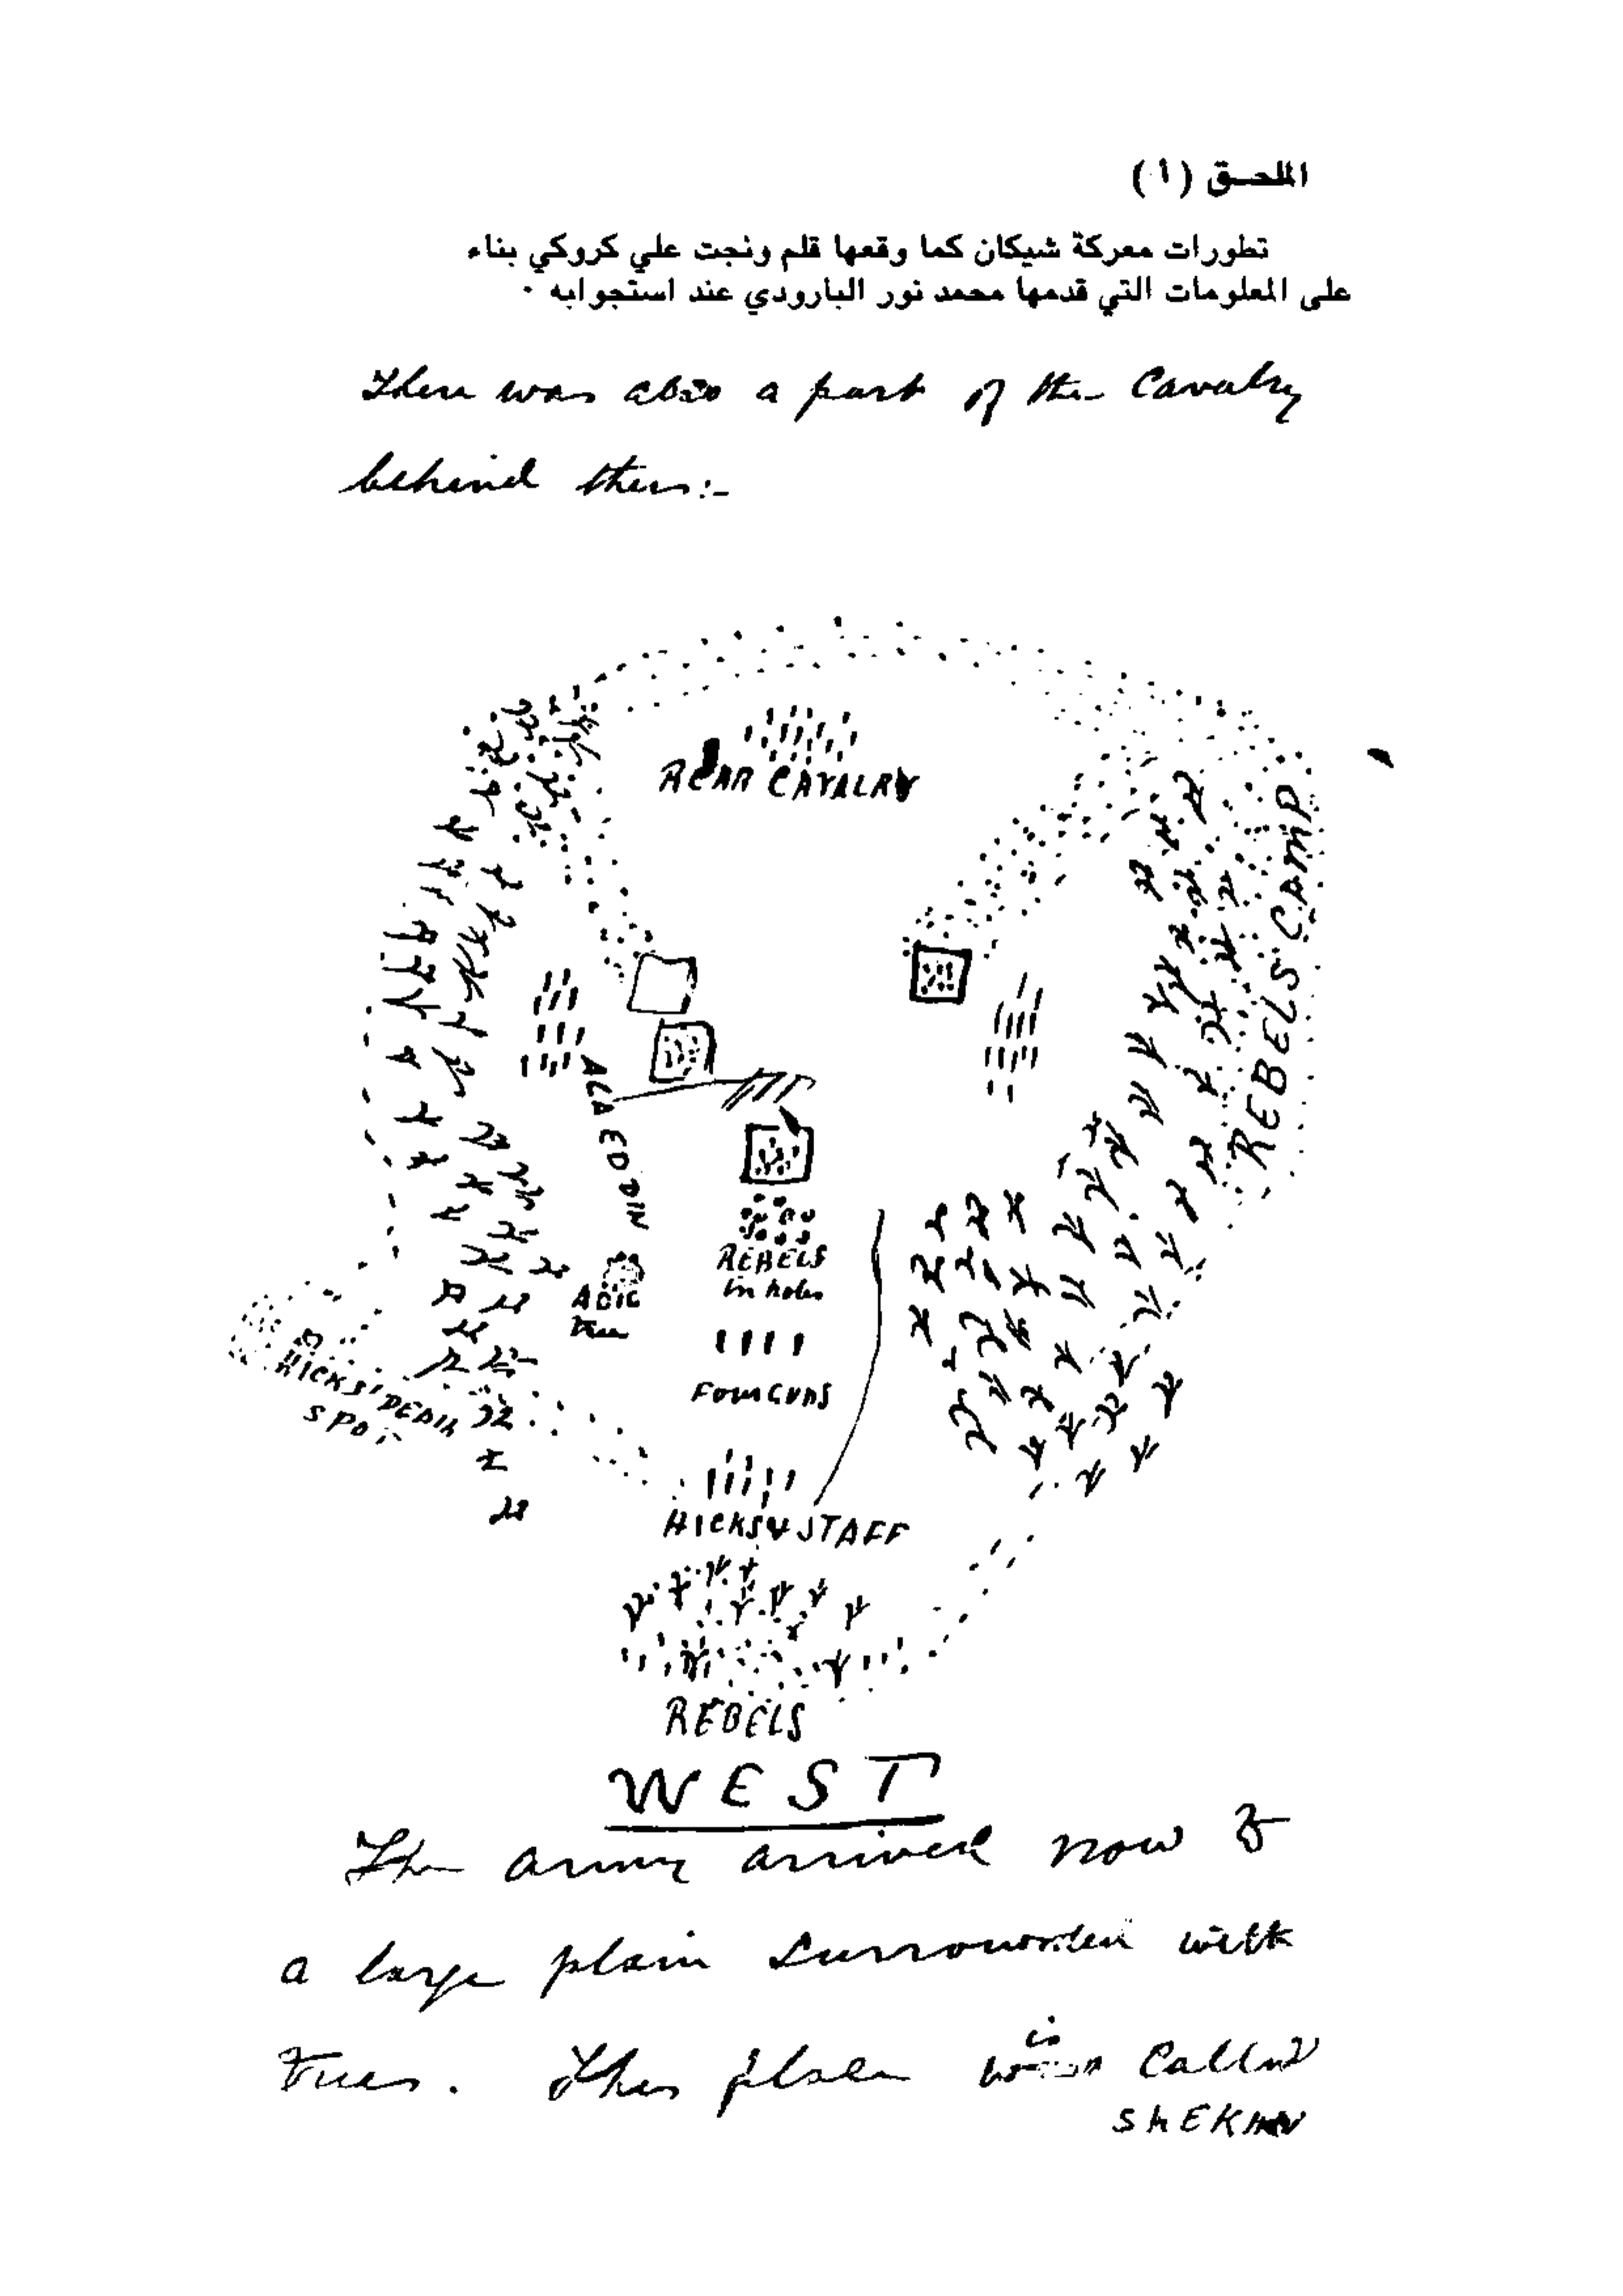 الملحـق (١)
تطورات معركة شيكان كما وقعها قلم ونجت علي كروكي بناء
على المعلومات التي قدمها محمد نور البارودي عند استجوابه ٠
There was also a part of the Cavalry
behind them:-
REAR CAVALRY
REBELS CAMP
ALA ED DIN
REBELS
in holes
ADIC
Tree
FOUR GUNS
HICKS' DEATH
SPOT
HICKS & STAFF
REBELS
WEST
The army arrived now to
a large plain surrounded with
trees. This place is called
SHEKAN